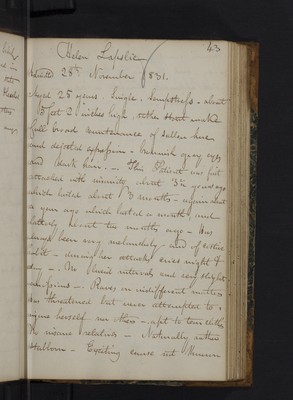 43
Helen Lapslie
Admitted 25th November 1831.
Aged 25 years, Single, Sempstress - about
5 feet 2 inches high, rather stout make
full broad countenance of sallow hue
and dejected expression - brownish gray eyes
and black hair. - This Patient was first
attacked with insanity about 3½ years ago
which lasted about 3 months - again about
a year ago which lasted a month and
latterly about two months ago - Has
always been very melancholy and of costive
habit - during her attacks raves night &
day - No lucid intervals and very slight
remissions - Raves on indifferent matters
has threatened but never attempted to
injure herself nor others - apt to tear clothes
No insane relatives - Naturally rather
stubborn - Exciting cause not known